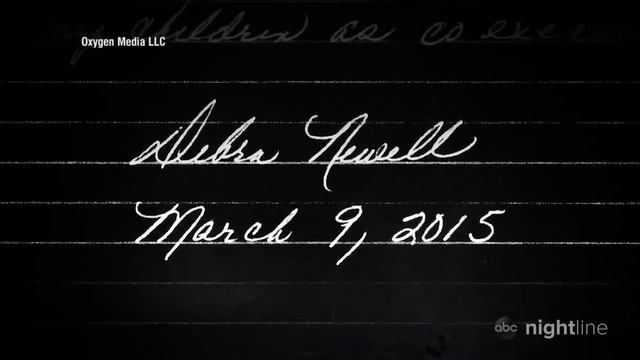 my children as co exec
Oxygen Media LLC
Debra Newell
March 9, 2015
abc nightline